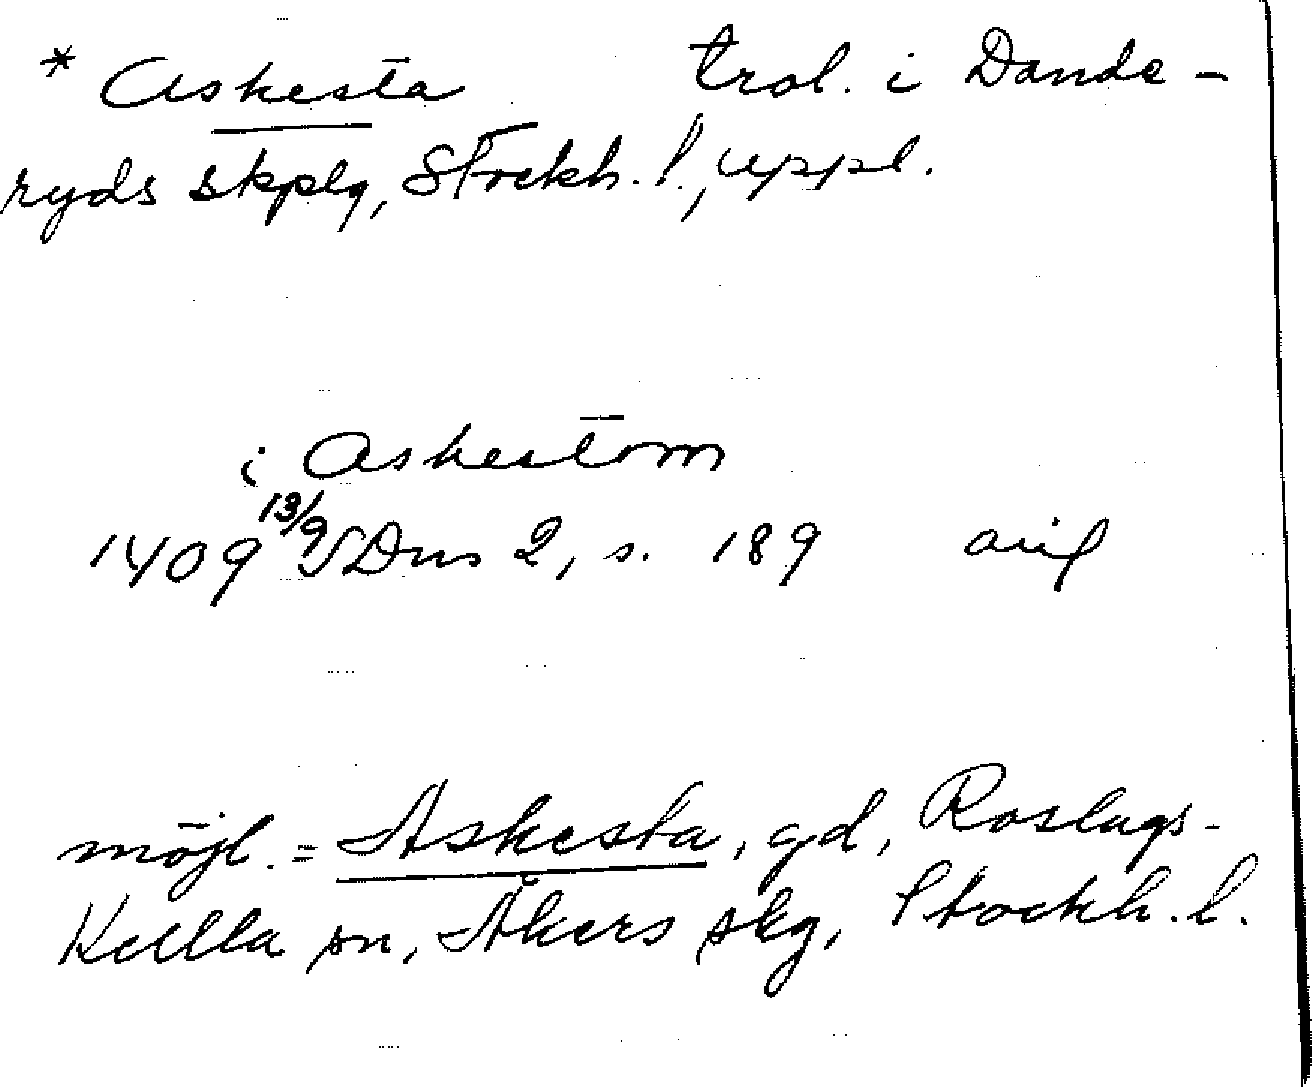 * Askesta trol. i Dande-
ryds skplg, Stockh. l., Uppl.
i Askestom
1409 13/9 SDns 2, s. 189
möjl. = Askesta, gd, Roslags-
Kulla sn, Åkers skg, Stockh. l.